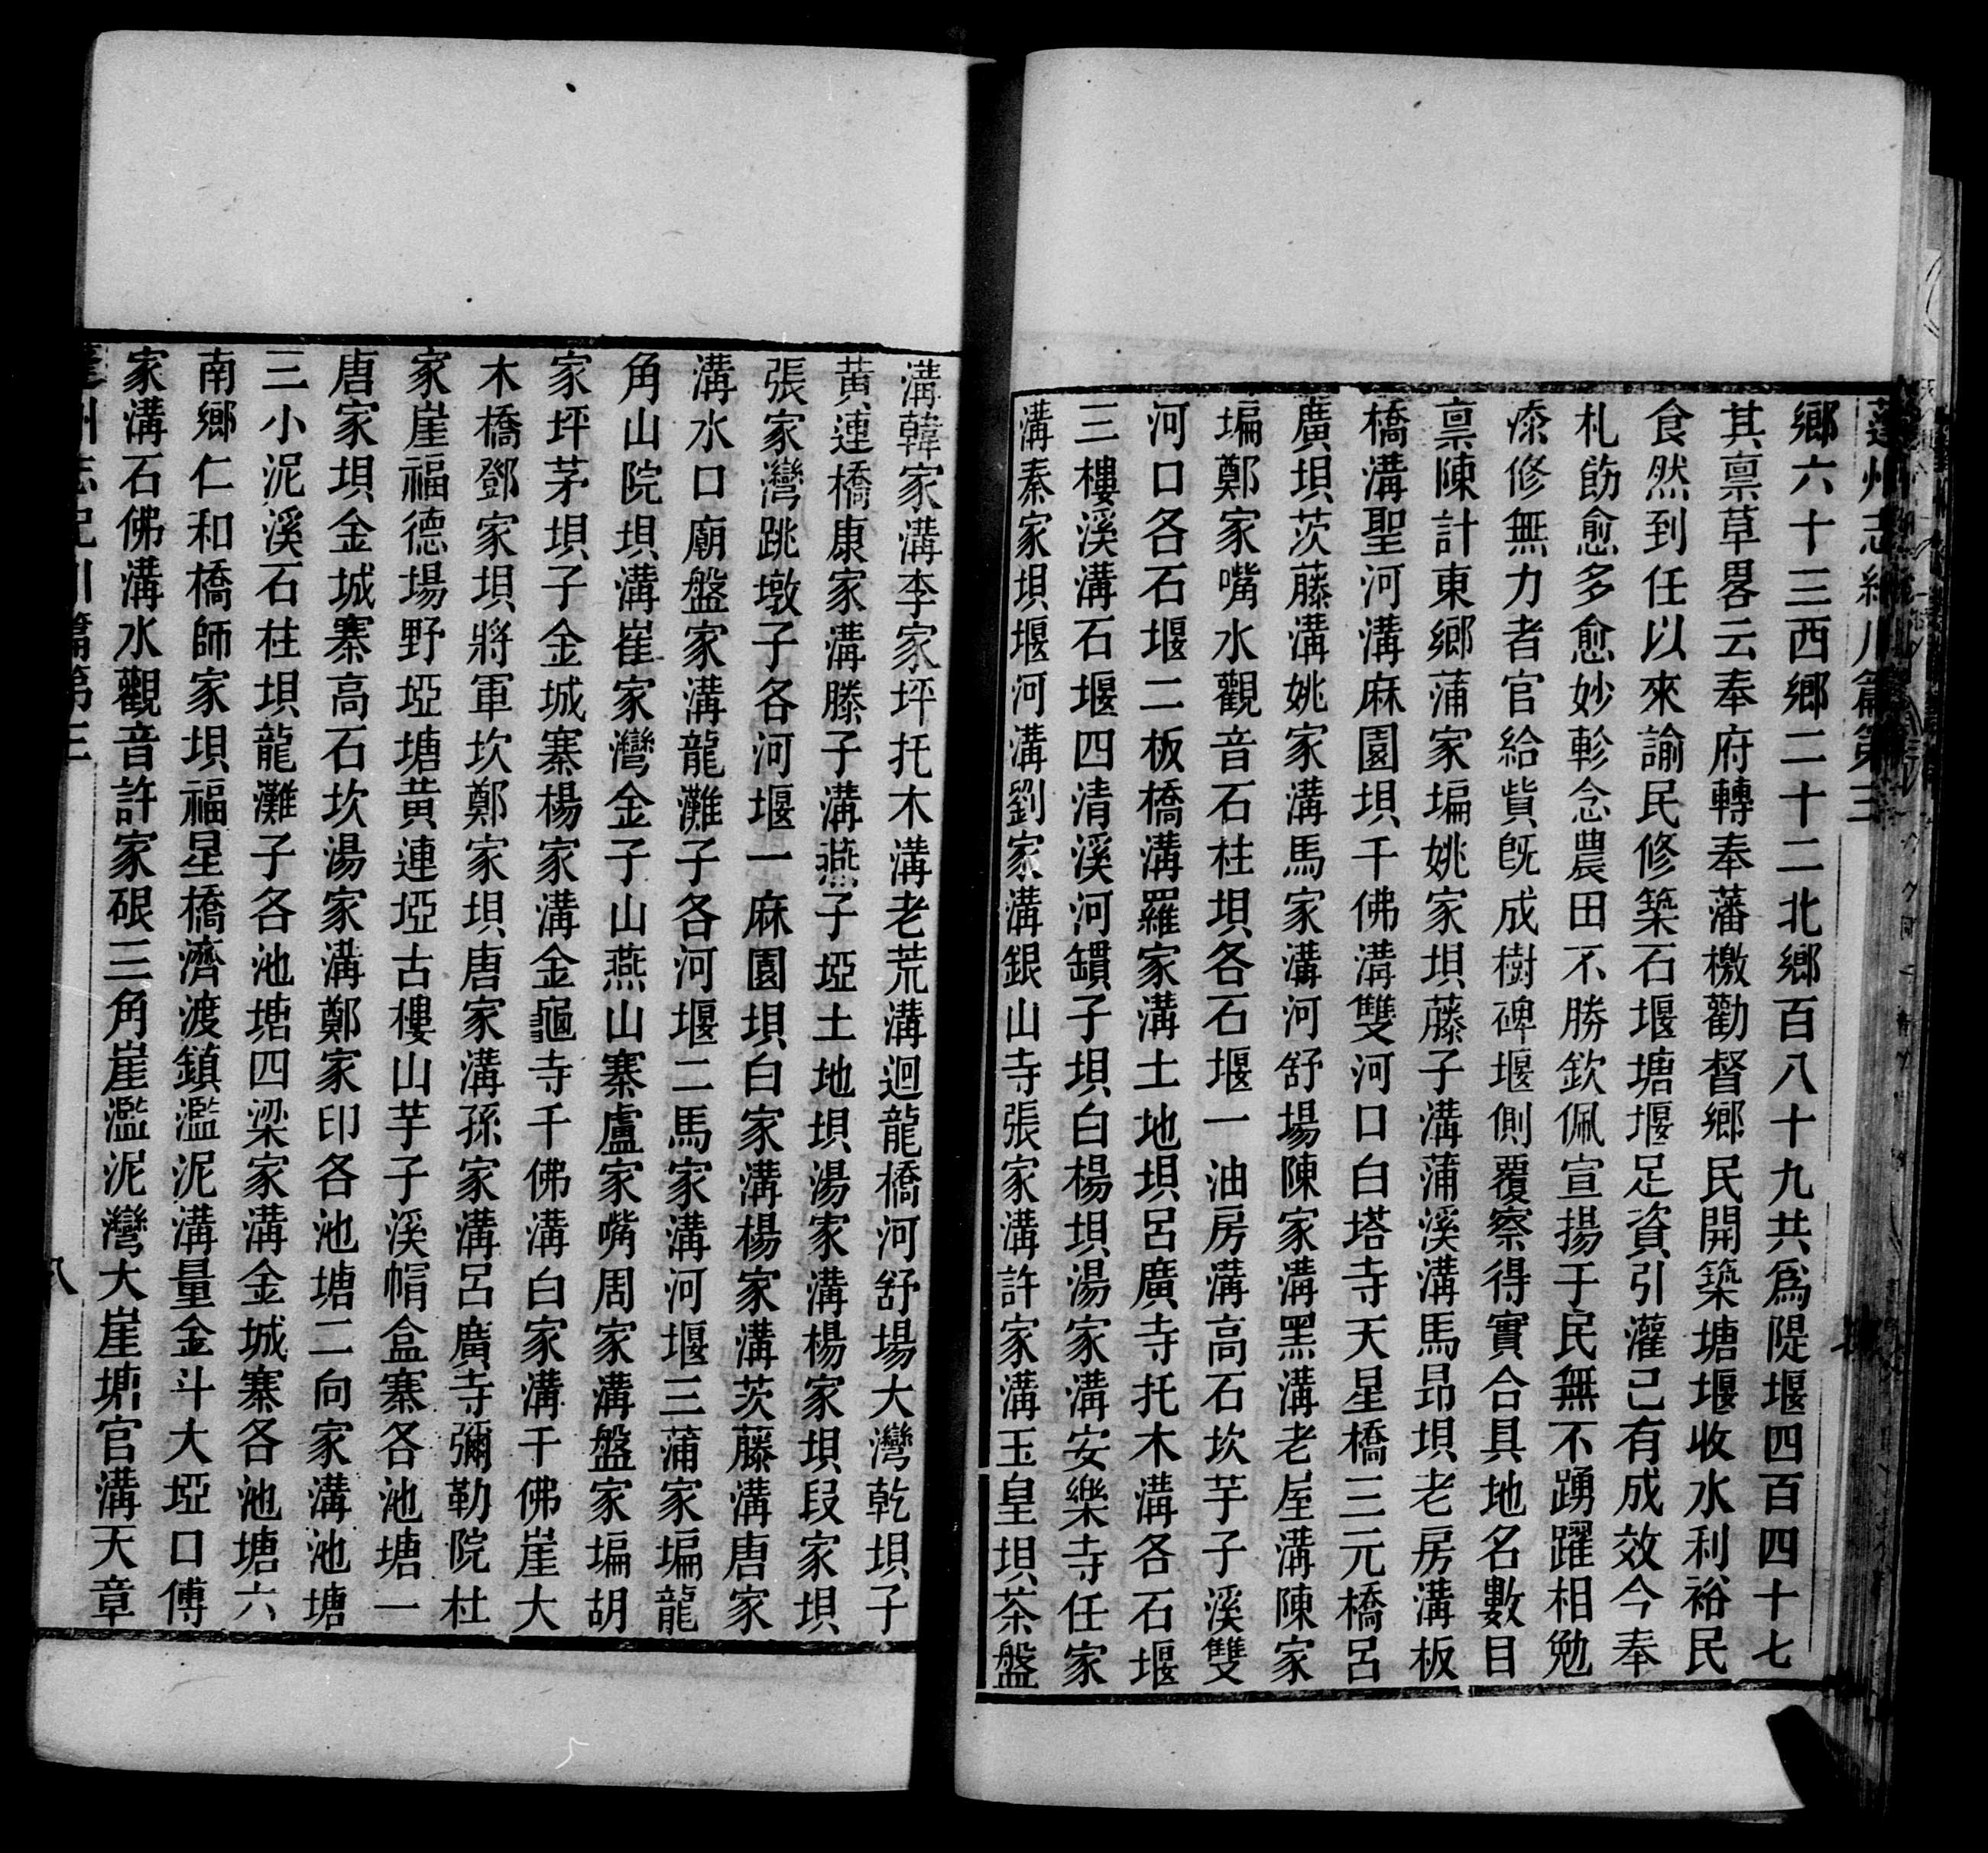 蓬州志紀川篇第三
鄉六十三西鄉二十二北鄉百八十九共爲隄堰四百四十七
其禀草畧云奉府轉奉藩檄勸督鄉民開築塘堰收水利裕民
食然到任以來諭民修築石堰塘堰足資引灌已有成效今奉
札飭愈多愈妙軫念農田不勝欽佩宣揚于民無不踴躍相勉
漆修無力者官給貲旣成樹碑堰側覆察得實合具地名數目
禀陳計東鄉蒲家塥姚家坝藤子溝蒲溪溝馬昂坝老房溝板
橋溝聖河溝麻園坝千佛溝雙河口白塔寺天星橋三元橋呂
廣坝茨藤溝姚家溝馬家溝河舒場陳家溝黑溝老屋溝陳家
塥鄭家嘴水觀音石柱坝各石堰一油房溝高石坎芋子溪雙
河口各石堰二板橋溝羅家溝土地坝呂廣寺托木溝各石堰
三樓溪溝石堰四清溪河鏆子坝白楊坝湯家溝安樂寺任家
溝秦家坝堰河溝劉家溝銀山寺張家溝許家溝玉皇坝茶盤
溝韓家溝李家坪托木溝老荒溝迴龍橋河舒場大灣乾坝子
黃連橋康家溝滕子溝燕子埡土地坝湯家溝楊家坝段家坝
張家灣跳墩子各河堰一麻園坝白家溝楊家溝茨藤溝唐家
溝水口廟盤家溝龍灘子各河堰二馬家溝河堰三蒲家塥龍
角山院坝溝崔家灣金子山燕山寨盧家嘴周家溝盤家塥胡
家坪茅坝子金城寨楊家溝金龜寺千佛溝白家溝千佛崖大
木橋鄧家坝將軍坎鄭家坝唐家溝孫家溝呂廣寺彌勒院杜
家崖福德場野埡塘黄連埡古樓山芋子溪帽盒寨各池塘一
唐家坝金城寨高石坎湯家溝鄭家印各池塘二向家溝池塘
三小泥溪石柱坝龍灘子各池塘四梁家溝金城寨各池塘六
南鄉仁和橋師家坝福星橋濟渡鎮濫泥溝量金斗大埡口傅
家溝石佛溝水觀音許家硍三角崖濫泥灣大崖塘官溝天章
蓬州志紀川篇第三 八